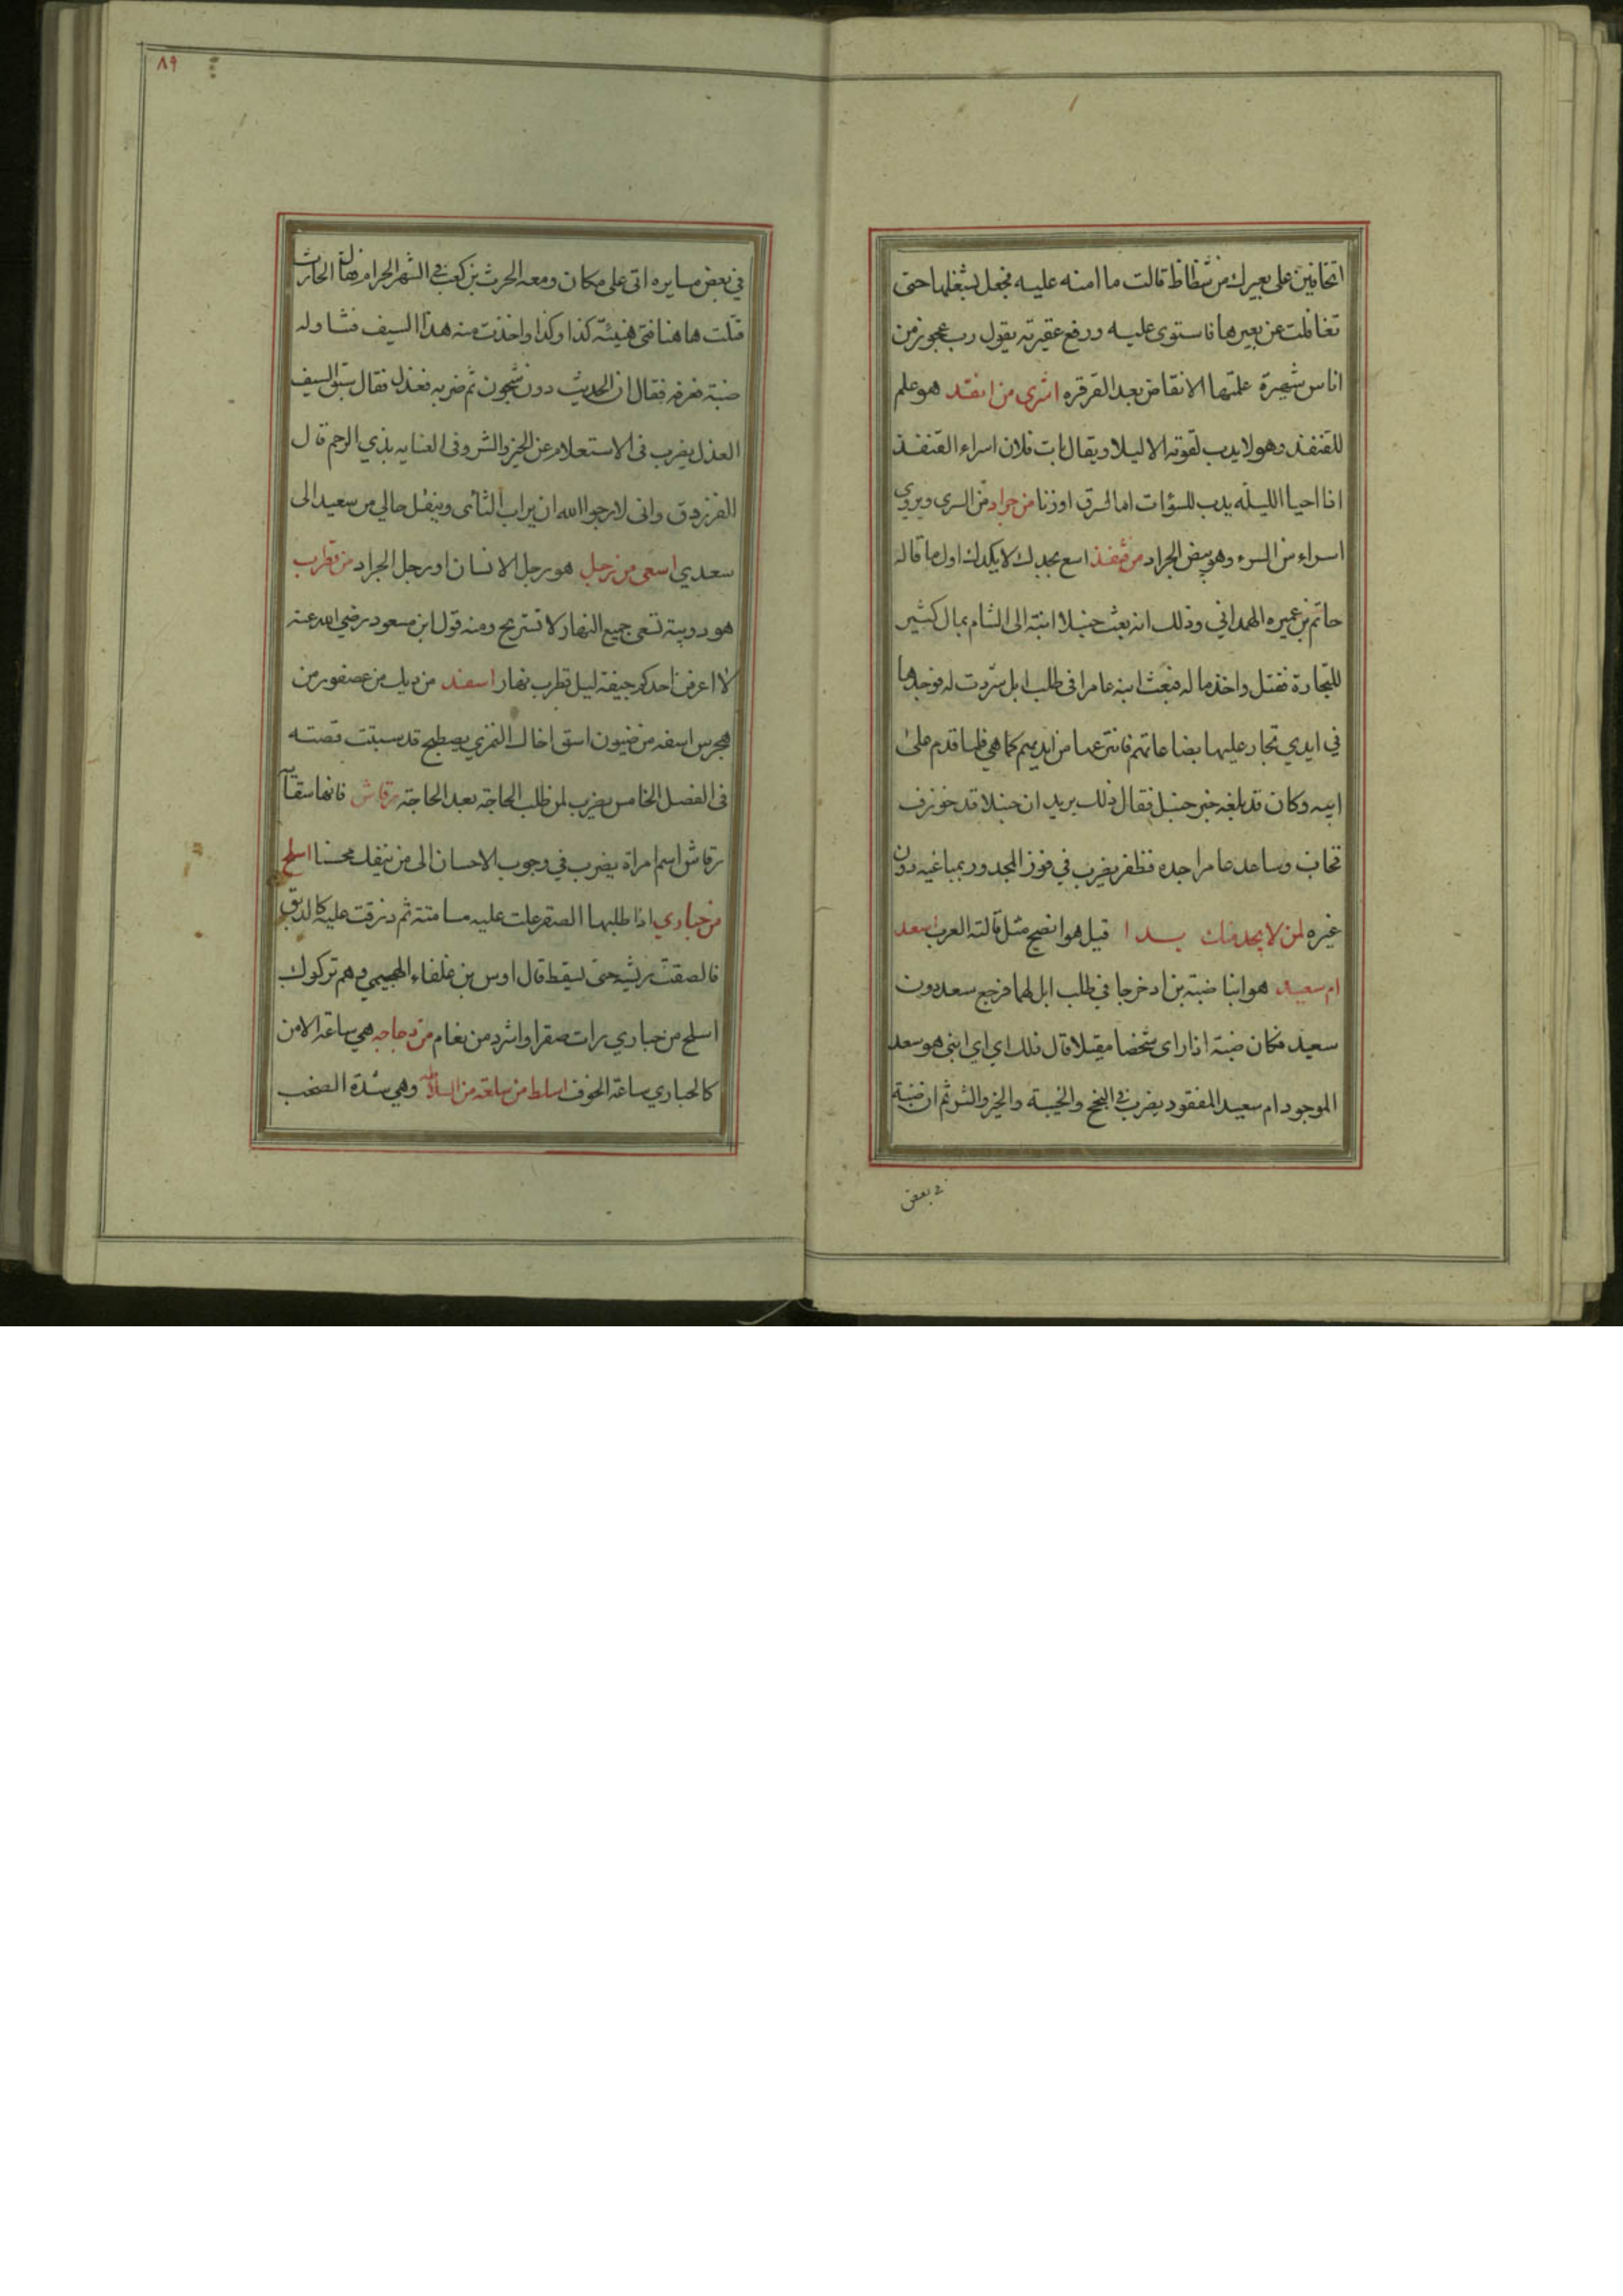 اتخافين على بعيرك من شظاظ قالت ما امنه عليه فجعل يشغلها حتى
تغافلت عن بعيرها فاستوى عليه ورفع عقيرته يقول رب عجوز من
اناس شهبرة علمتها الانقاض بعد القرقره اسرى من انقد هو علم
للقنفذ وهو لا يدب لقوته الا ليلا ويقال بات فلان اسراء القنفذ
انا احيا الليله يدب للسؤات اما لسرق او زنا من جراد من السرى ويروى
اسراء من السرء وهو بيض الجراد من قنفذ اسع بجدك لا بكدك اول ما قاله
حاتم بن عميره الهمداني وذلك انه بعث حنبلا ابنه الى الشام بمال كثير
للتجارة فقتل واخذ ماله فبعث ابنه عامرا فى طلب ابل شردت له فوجدها
في ايدي تجار عليها بضاعاتهم فانتزعها من ايديهم كما هي فلما قدم على
ابيه وكان قد بلغه خبر حنبل فقال ذلك يريد ان حنبلا قد
فخاب وساعد عامرا جده فظفر يضرب في فوز المجدود بمباغيه دون
غيره لمن لا يجد منك بدا قيل هو افصح مثل قالته العرب اسعد
ام سعيد هو ابنا ضبة بن اد خرجا في طلب ابل لهما فرجع سعد دون
سعيد فكان ضبة اذا راى شخصا مقبلا قال ذلك اي اي ابني هو سعد
الموجود ام سعيد المفقود يضرب في النجح والخيبة والخير والشر ثم ان ضبة
في بعض
٨٩
في بعض مسايره اتى على مكان ومعه الحرث بن كعب في الشهر الحرام فقال له الحارث
قتلت هاهنا فتى هيئته كذا وكذا واخذت منه هذا السيف فتناوله
ضبة فعرفه فقال ان الحديث دون شجون ثم ضربه فعذل فقال سبق السيف
العذل يضرب فى الاستعلام عن الخير والشر وفى العنايه بذي الرحم قال
الفرزدق وانى لارجوا الله ان يراب الثأى وينقل حالي من سعيد الى
سعدي اسعى من رجل هو رجل الانسان او رجل الجراد من قطرب
هو دويبة تسعى جميع النهار لا تستريح ومنه قول ابن مسعود رضي الله عنه
لا اعرفن احدكم جيفة ليل قطرب نهار اسفد من ديك من عصفور من
هجرس اسفد من ضيون اسق اخاك النمري يصطبح قد سبقت قصته
فى الفصل الخامس يضرب لمن طلب الحاجة بعد الحاجة رقاش فانها سقآ
رقاش اسم امراة يضرب في وجوب الاحسان الى من ينفك محسنا اسلح
من حبارى اذا طلبها الصقر علت عليه مسامتة ثم ذرقت عليه كالدبق
فالصقت ريشه حتى يسقط قال اوس بن غلفاء الهجيمي وهم تركوك
اسلح من حباري رات صقرا واشرد من نعام من دجاجه هي ساعة الامن
كالحباري ساعة الخوف اسلط من سلقه من السلاطه وهي شدة الصخب